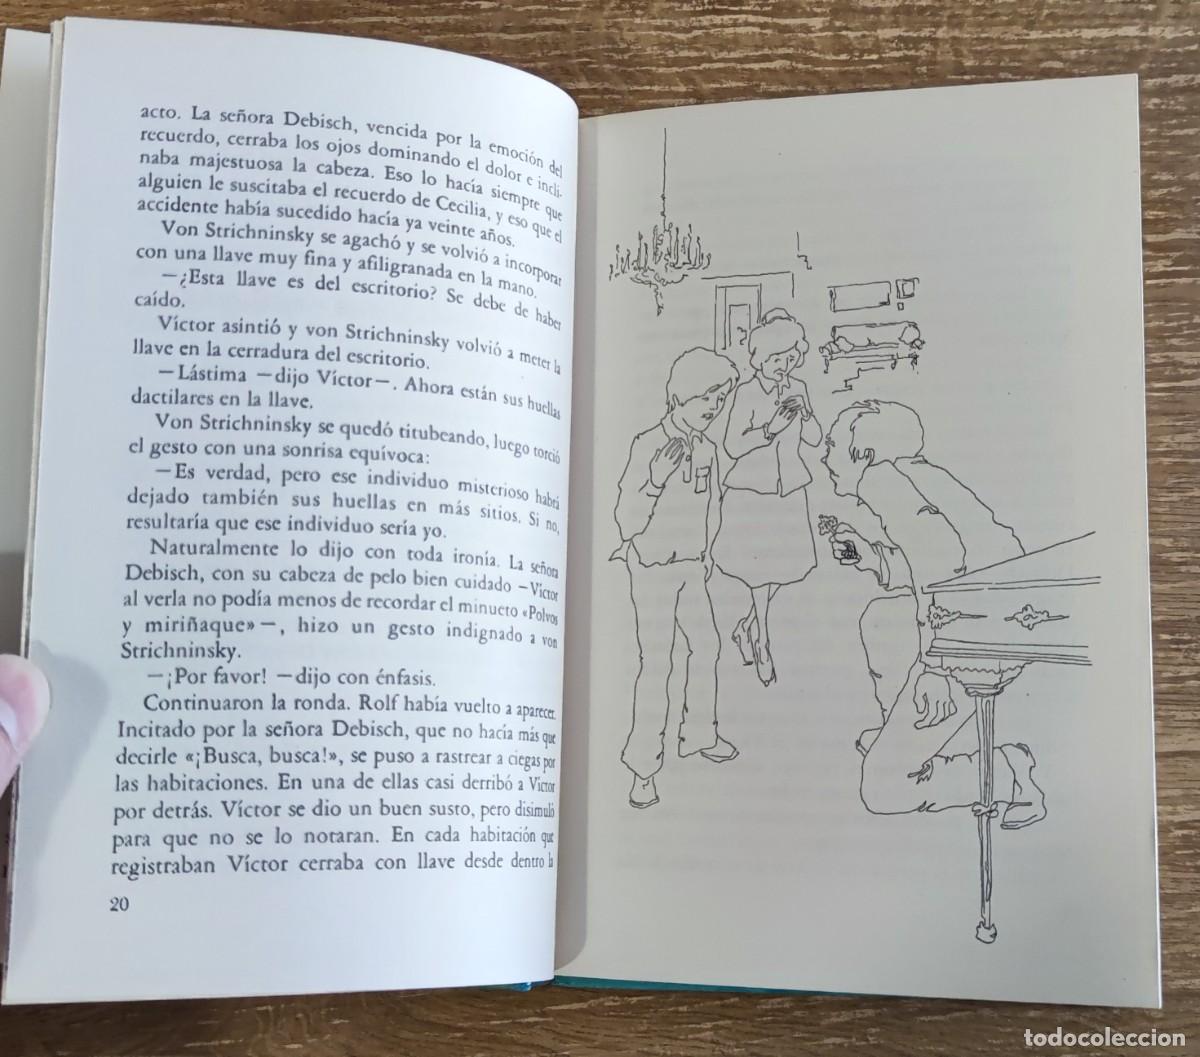 acto. La señora Debisch, vencida por la emoción del
recuerdo, cerraba los ojos dominando el dolor e incli-
naba majestuosa la cabeza. Eso lo hacía siempre que
alguien le suscitaba el recuerdo de Cecilia, y eso que el
accidente había sucedido hacía ya veinte años.
Von Strichninsky se agachó y se volvió a incorporar
con una llave muy fina y afiligranada en la mano.
—¿Esta llave es del escritorio? Se debe de haber
caído.
Víctor asintió y von Strichninsky volvió a meter la
llave en la cerradura del escritorio.
—Lástima —dijo Víctor—. Ahora están sus huellas
dactilares en la llave.
Von Strichninsky se quedó titubeando, luego torció
el gesto con una sonrisa equívoca:
—Es verdad, pero ese individuo misterioso habrá
dejado también sus huellas en más sitios. Si no,
resultaría que ese individuo sería yo.
Naturalmente lo dijo con toda ironía. La señora
Debisch, con su cabeza de pelo bien cuidado —Víctor
al verla no podía menos de recordar el minueto «Polvos
y miriñaque»—, hizo un gesto indignado a von
Strichninsky.
—¡Por favor! —dijo con énfasis.
Continuaron la ronda. Rolf había vuelto a aparecer.
Incitado por la señora Debisch, que no hacía más que
decirle «¡Busca, busca!», se puso a rastrear a ciegas por
las habitaciones. En una de ellas casi derribó a Víctor
por detrás. Víctor se dio un buen susto, pero disimuló
para que no se lo notaran. En cada habitación que
registraban Víctor cerraba con llave desde dentro la
20
todocoleccion